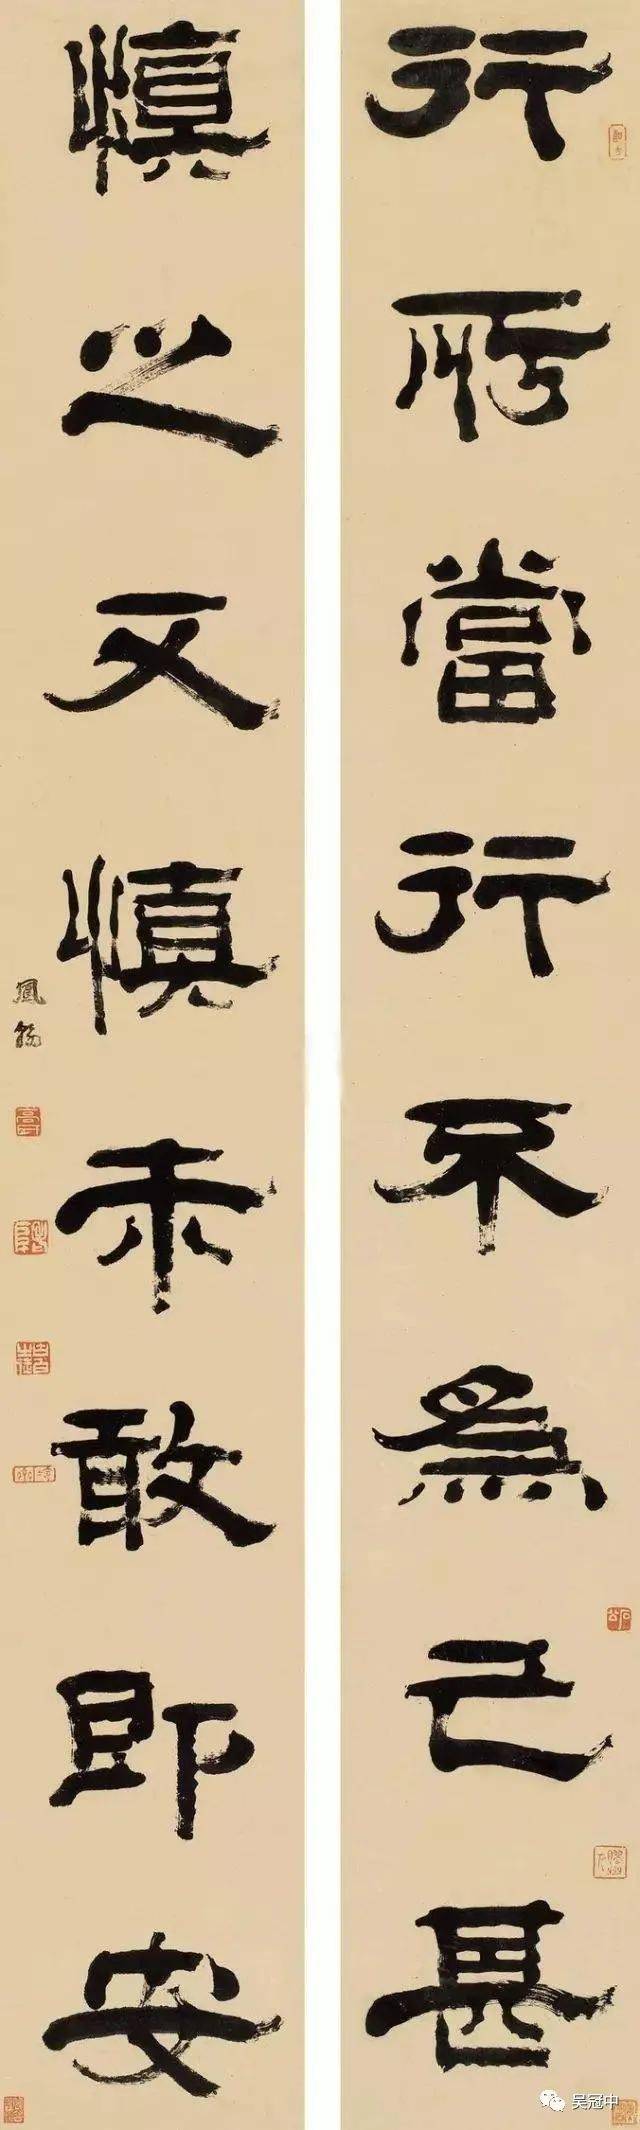 行所當行不為已甚
慎之又慎未敢即安
鳳翰
吴冠中